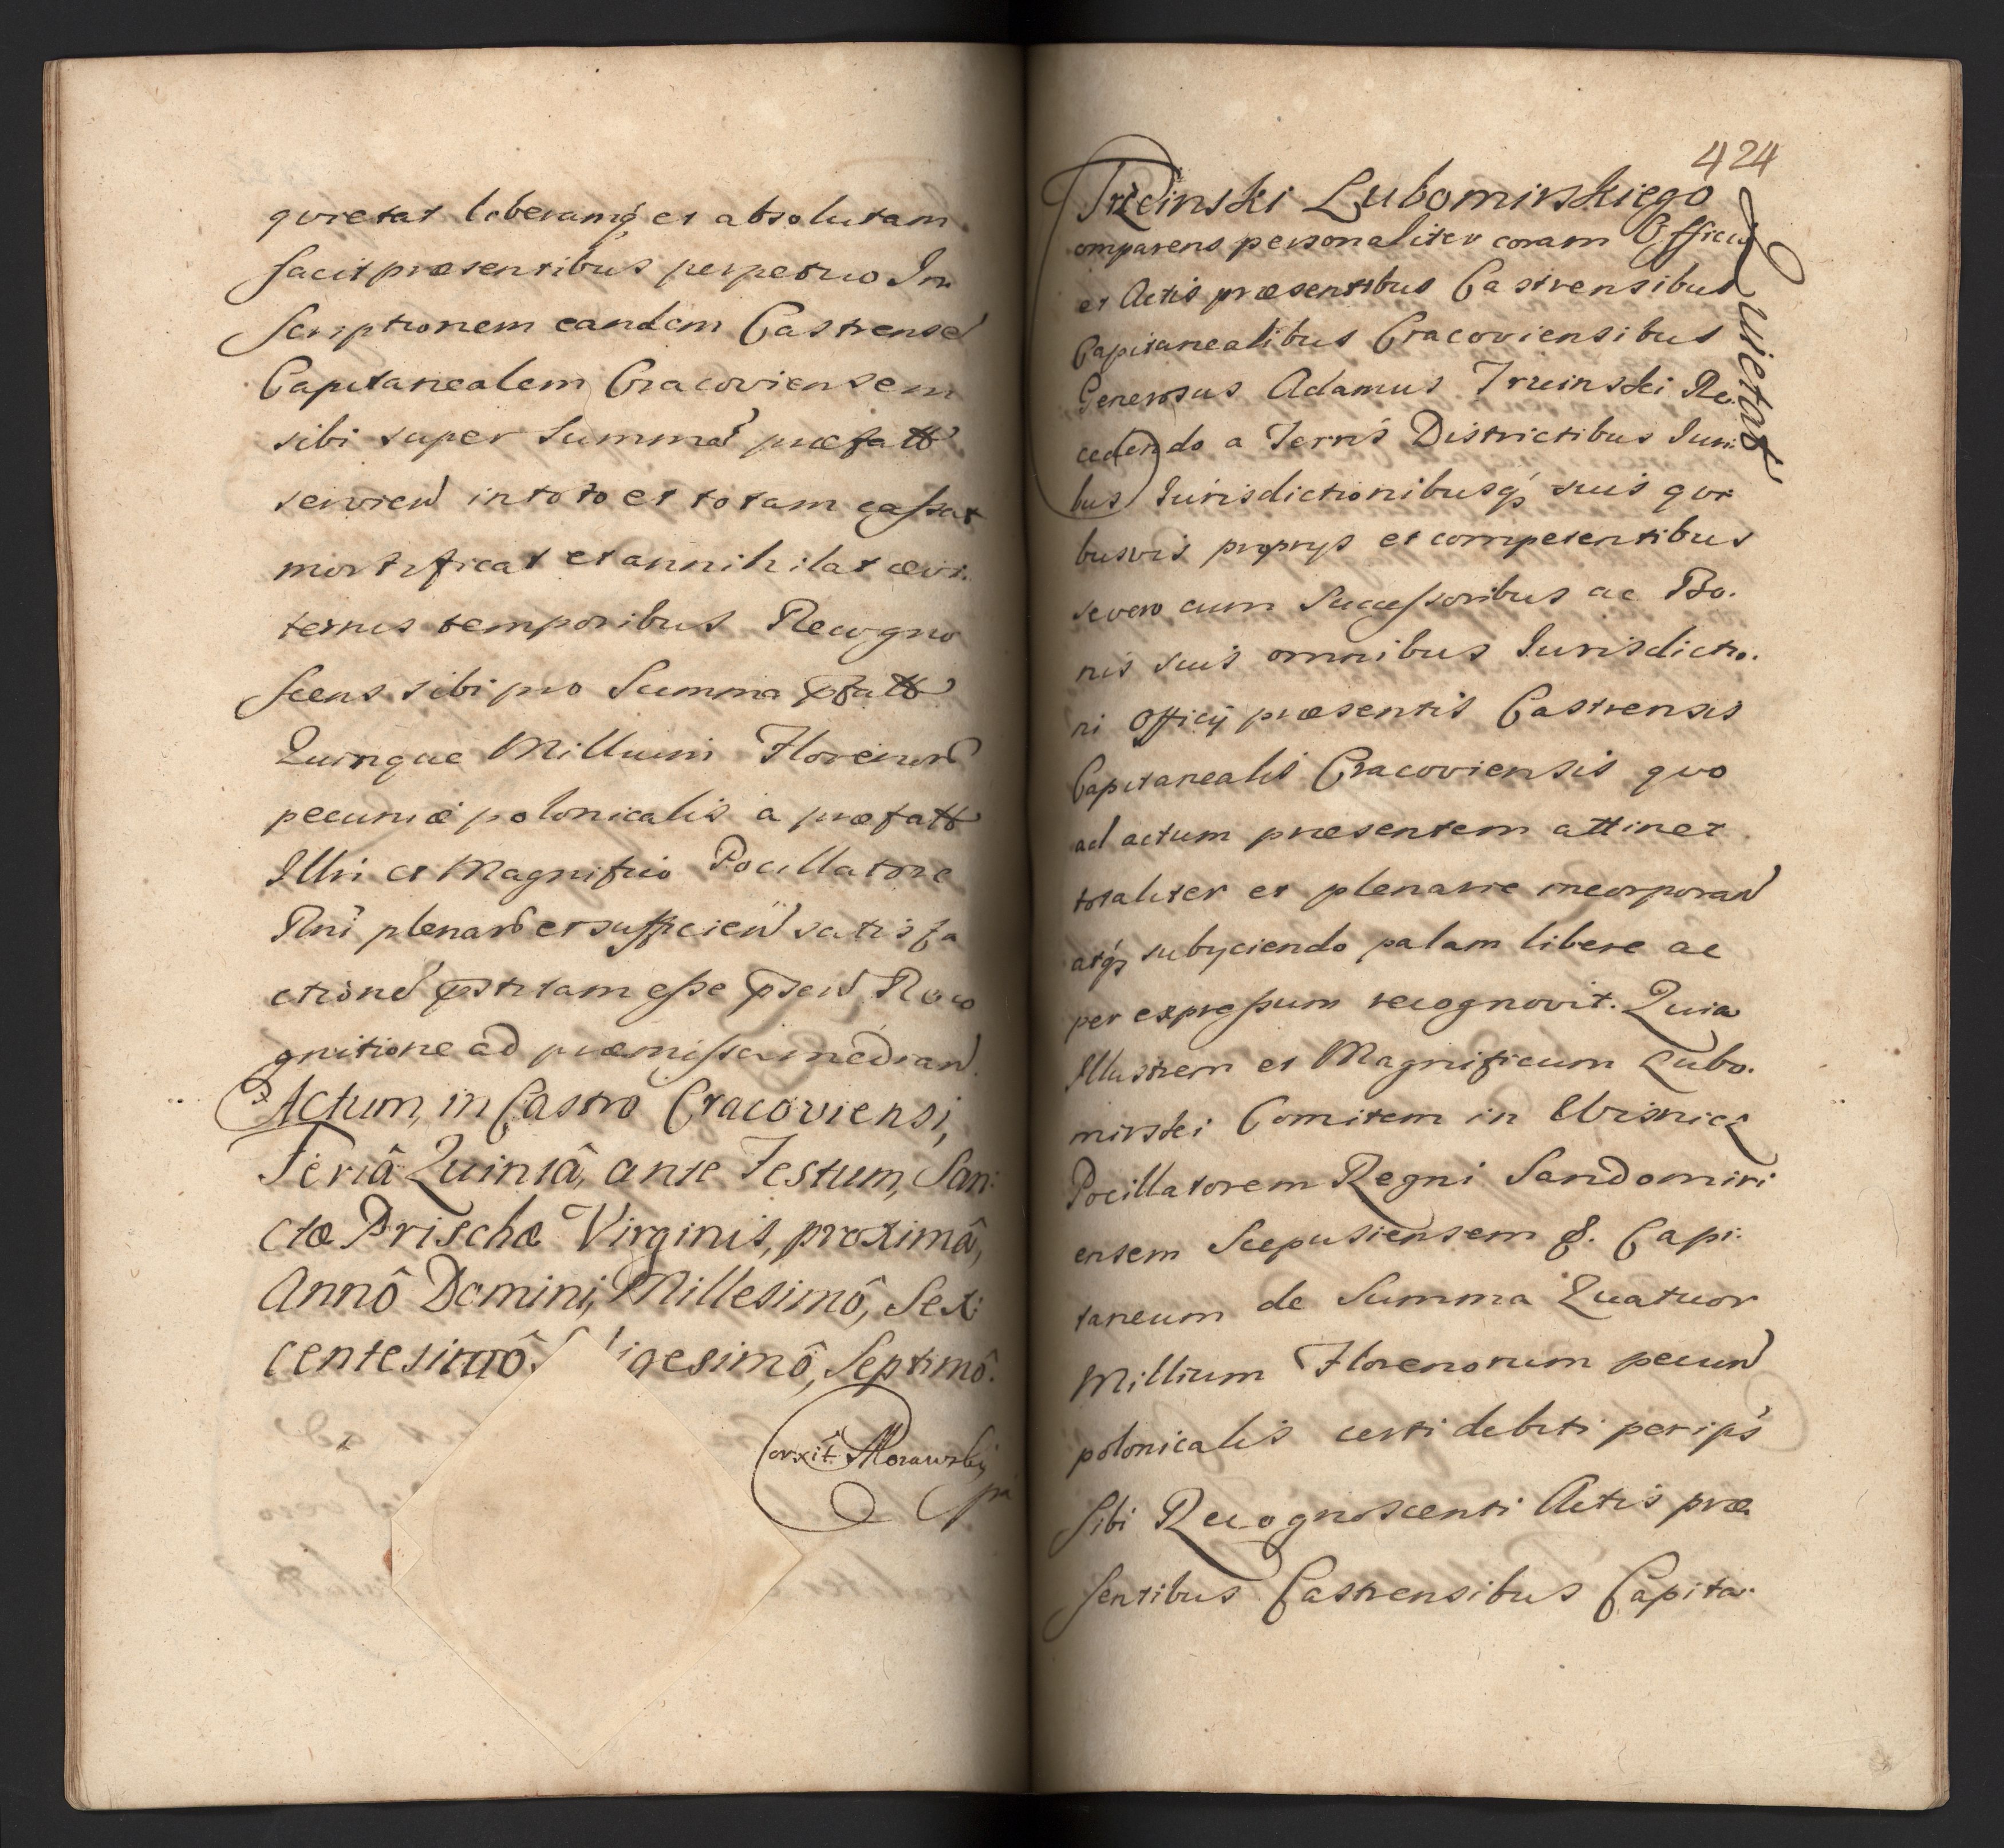 quietat liberamq; et absolutam
facit præsentibus perpetuo In
scriptionem eandem Castrensē
Capitanealem Cracoviensem
sibi super Summā præfatt
servień in toto et totam cassat
mortificat et annihilat ævi-
ternis temporibus Recogno
scens sibi pro Summa præfatt
Quinque Millium Florenorū
pecuniæ polonicalis a præfatt
Illri et Magnifico Pocillatore
Rni plenarō et sufficień satisfa
ctionē præstitam esse præsenť Reco
gnitione ad præmissa median
Actum, in Castro Cracoviensi,
Feriâ Quintâ, ante Festum, San:
ctæ Prischæ Virginis, proximâ,
Annô Domini, Millesimô, Sex:
centesimô, igesimô, Septimô.
Corxit Morawskj
424
Trzcinski Lubomirskiego
Quietat
Comparens personaliter coram Officio
et Actis præsentibus Castrensibus
Capitanealibus Cracoviensibus
Generosus Adamus Trzcinski Re-
cedendo a Terris Districtibus Iuri-
bus Iurisdictionibusq; suis qui-
busvis proprys et competentibus
se vero cum Successoribus ac Bo-
nis suis omnibus Iurisdictio-
ni Officÿ præsentis Castrensis
Capitanealis Cracoviensis quo
ad actum præsentem attinet
totaliter et plenarie incorporań
atq; subyciendo palam libere ac
per expressum recognovit. Quia
Illustrem et Magnificum Lubo-
mirski Comitem in Wisnicz
Pocillatorem Regni Sandomiri
ensem Scepusiensem &. Capi-
taneum de Summa Quatuor
Millium Florenorum pecuń
polonicalis certi debiti per ips
Sibi Recognoscenti Actis præ
sentibus Castrensibus Capita-